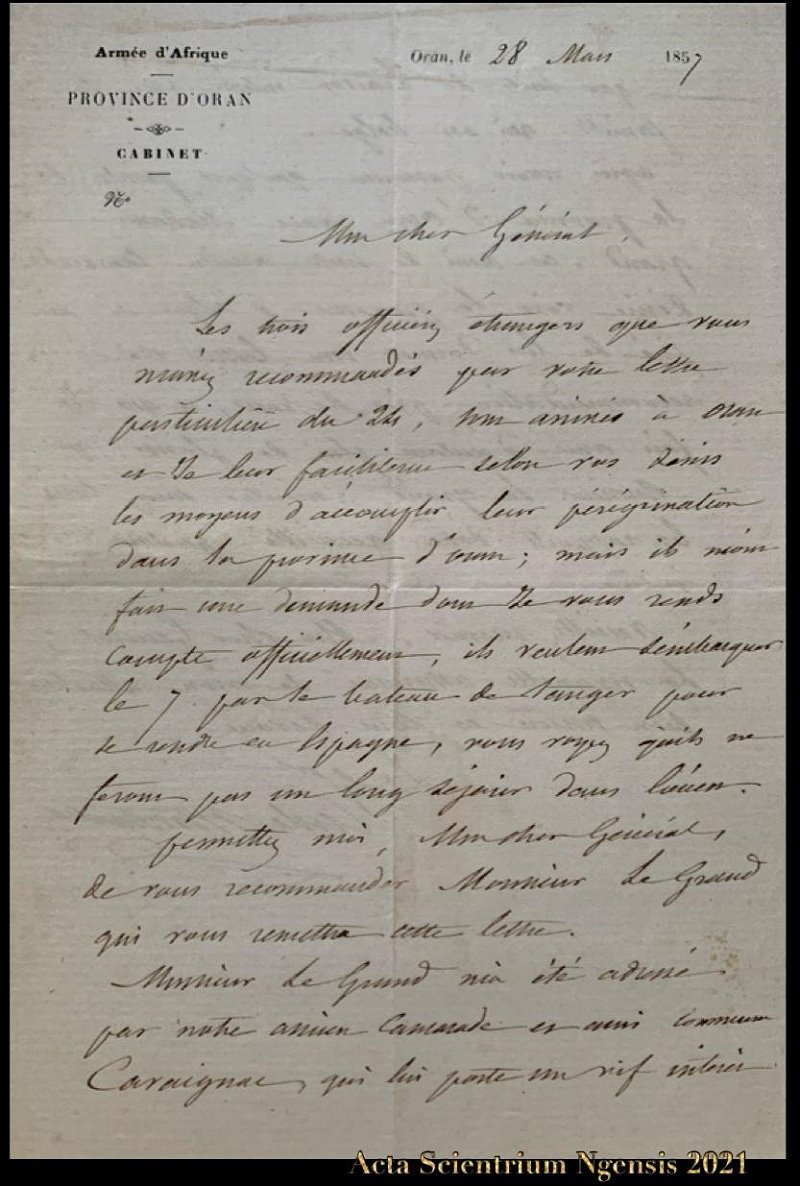 Armée d'Afrique
PROVINCE D'ORAN
CABINET
No
Oran, le 28 Mars 1857
Mon cher Général,
Les trois officiers étrangers que vous
m'aviez recommandés par votre lettre
particulière du 24, sont arrivés à Oran
et Je leur faciliterai selon vos désirs
les moyens d'accomplir leur pérégrination
dans la province d'oran; mais ils m'ont
fait une demande dont Je vous rends
compte officiellement, ils veulent s'embarquer
le 7 par le bateau de tanger pour
se rendre en Espagne, vous voyez qu'ils ne
feront pas un long séjour dans l'ouest.
permettez moi, Mon cher Général,
de vous recommander Monsieur Le Grand
qui vous remettra cette lettre.
Monsieur Le Grand m'a été adressé
par notre ancien Camarade et ami commun
Cavaignac, qui lui porte un vif intérêt
Acta Scientrium Ngensis 2021